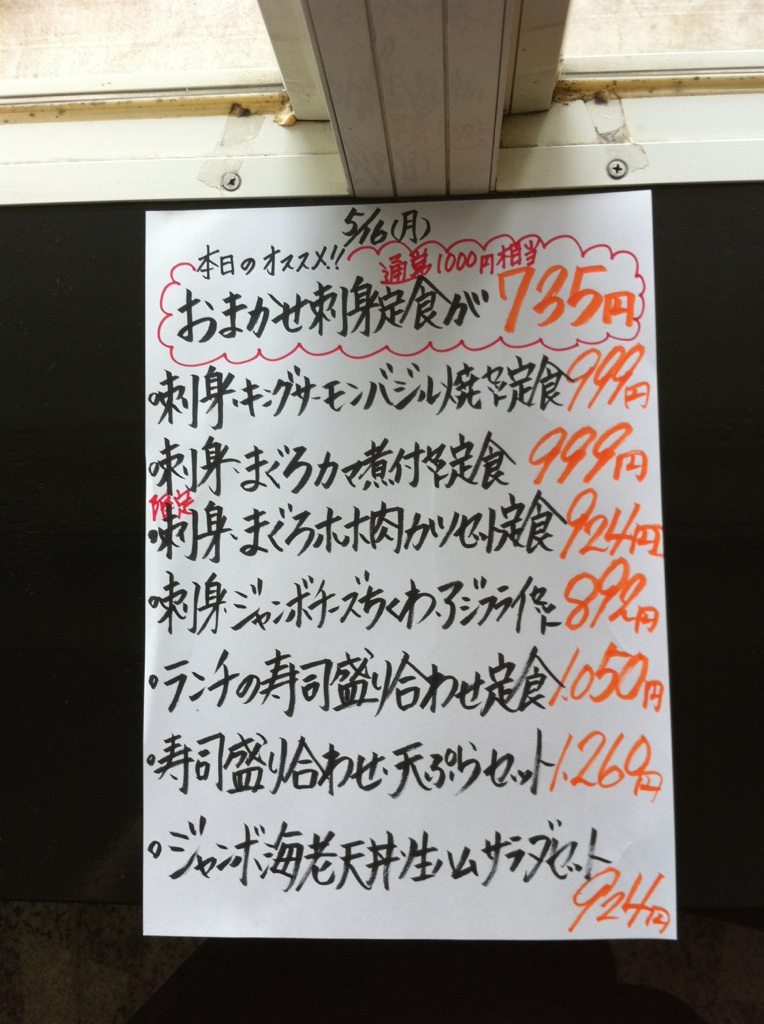 5/16(月)
本日のオススメ!! 通常1000円相当
おまかせ刺身定食が 735円
・刺身、キングサーモンバジル焼き定食 999円
・刺身、まぐろカマ煮付け定食 999円
限定
・刺身、まぐろホホ肉カツセット定食 924円
・刺身、ジャンボチーズちくわ、アジフライセット 892円
・ランチの寿司盛り合わせ定食 1.050円
・寿司盛り合わせ、天ぷらセット 1.260円
・ジャンボ海老天丼、生ハムサラダセット
924円